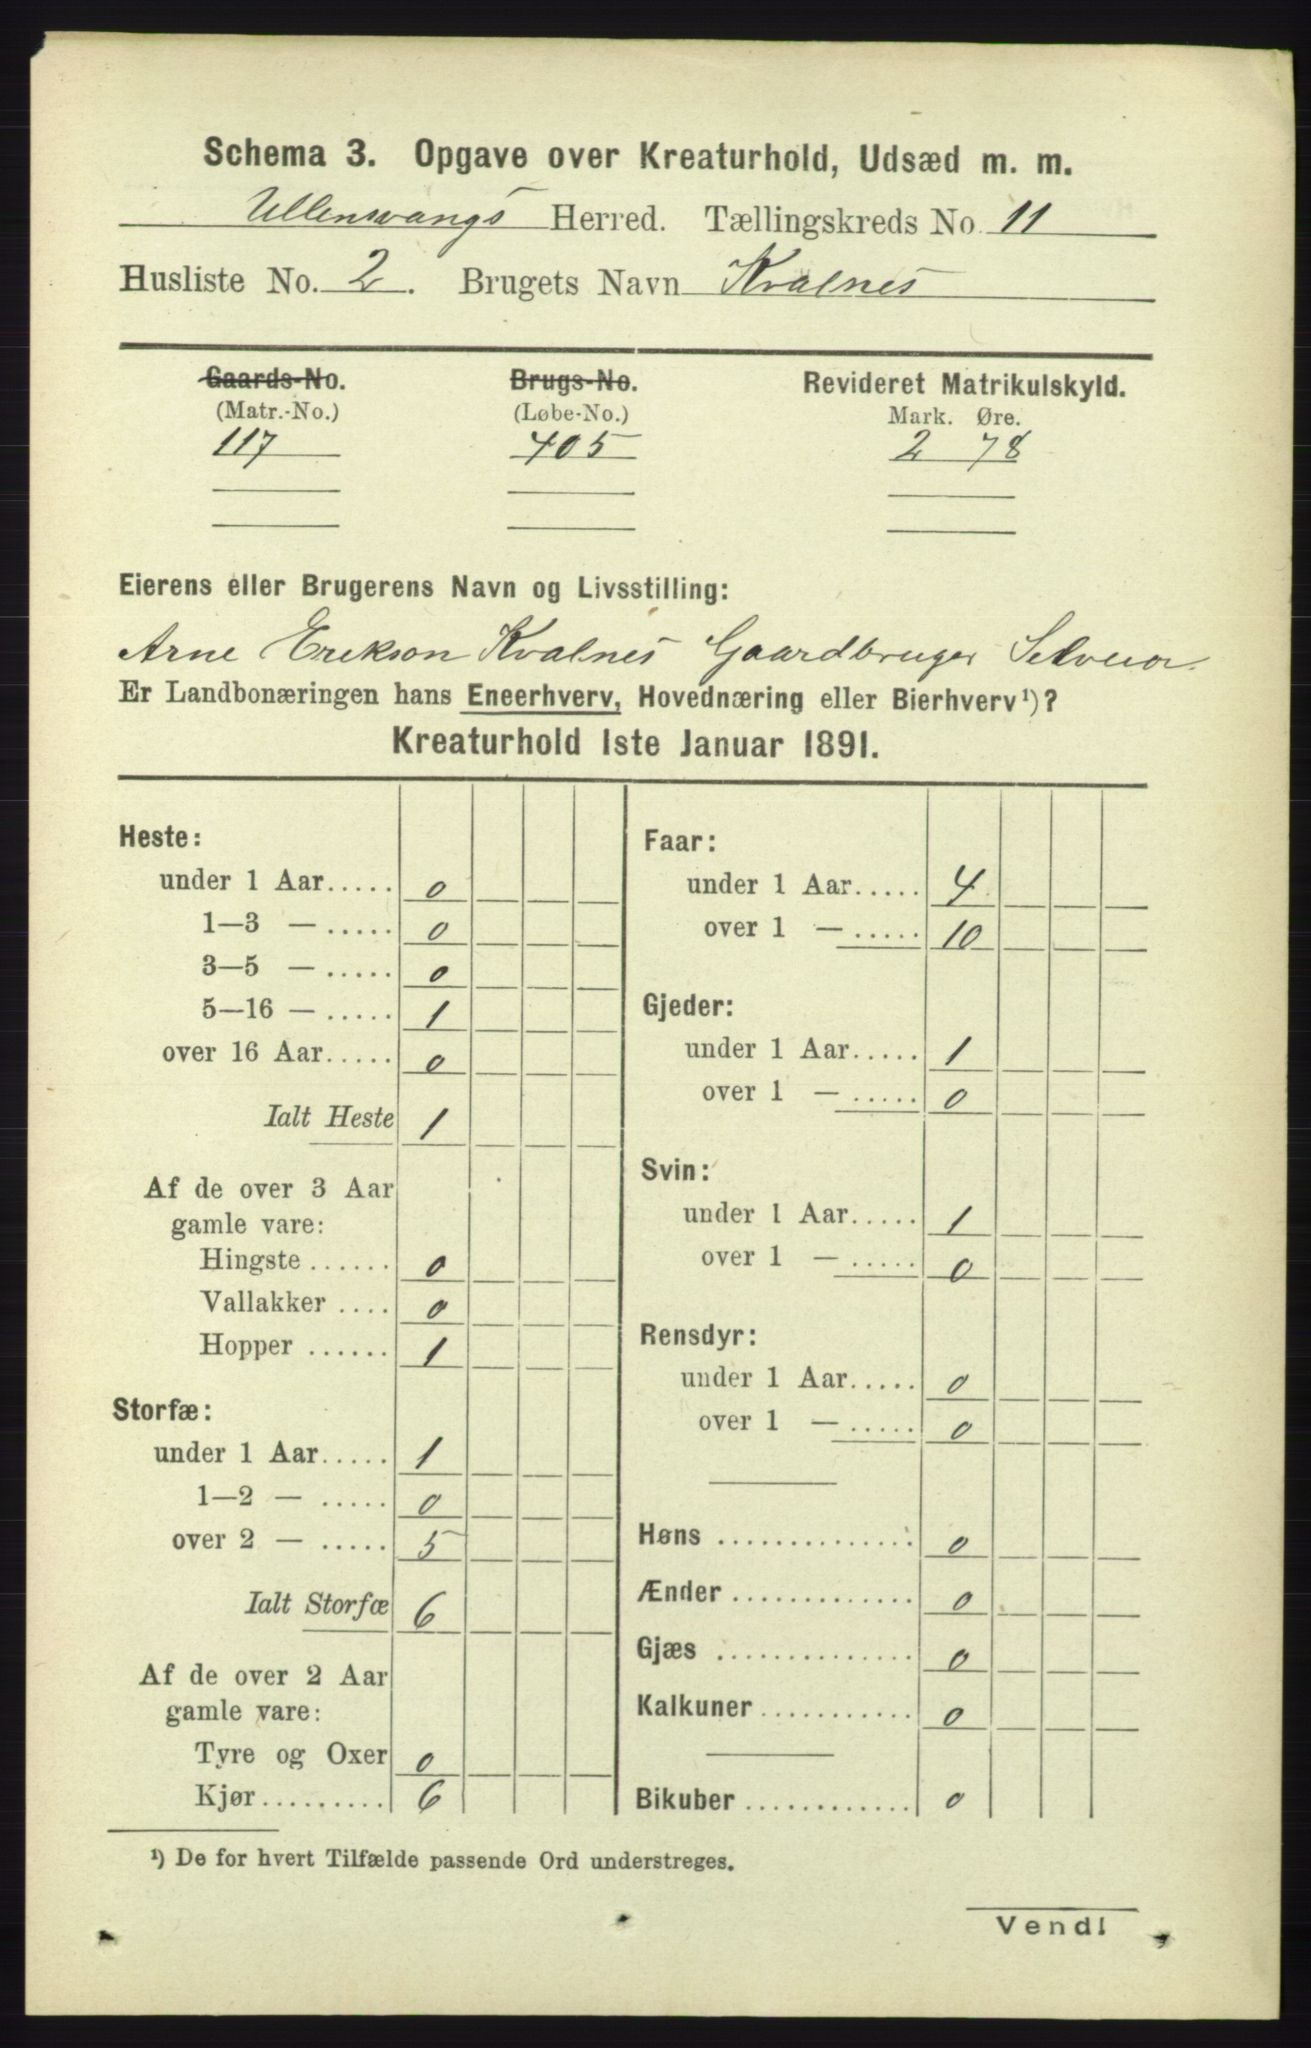 Schema 3. Opgave over Kreaturhold, Udsæd m. m.
Ullensvangs Herred. Tællingskreds No. 11
Husliste No. 2. Brugets Navn Kvalnes
Gaards-No. Brugs-No. Revideret Matrikulskyld.
(Matr.-No.) (Løbe-No.) Mark. Øre.
117 405 2 78
Eierens eller Brugerens Navn og Livsstilling:
Arne Erikson Kvalnes Gaardbruger Selveier
Er Landbonæringen hans Eneerhverv, Hovednæring eller Bierhverv¹)?
Kreaturhold 1ste Januar 1891.
Heste:
under 1 Aar..... 0
1—3 — ..... 0
3—5 — ..... 0
5—16 — ..... 1
over 16 Aar..... 0
Ialt Heste 1
Af de over 3 Aar
gamle vare:
Hingste ...... 0
Vallakker .... 0
Hopper ...... 1
Storfæ:
under 1 Aar..... 1
1—2 — ..... 0
over 2 — ..... 5
Ialt Storfæ 6
Af de over 2 Aar
gamle vare:
Tyre og Oxer 0
Kjør......... 6
Faar:
under 1 Aar..... 4
over 1 — ..... 10
Gjeder:
under 1 Aar..... 1
over 1 — ..... 0
Svin:
under 1 Aar..... 1
over 1 — ..... 0
Rensdyr:
under 1 Aar..... 0
over 1 — ..... 0
Høns .............. 0
Ænder ............. 0
Gjæs .............. 0
Kalkuner ........... 0
Bikuber ............ 0
¹) De for hvert Tilfælde passende Ord understreges.
Vend!